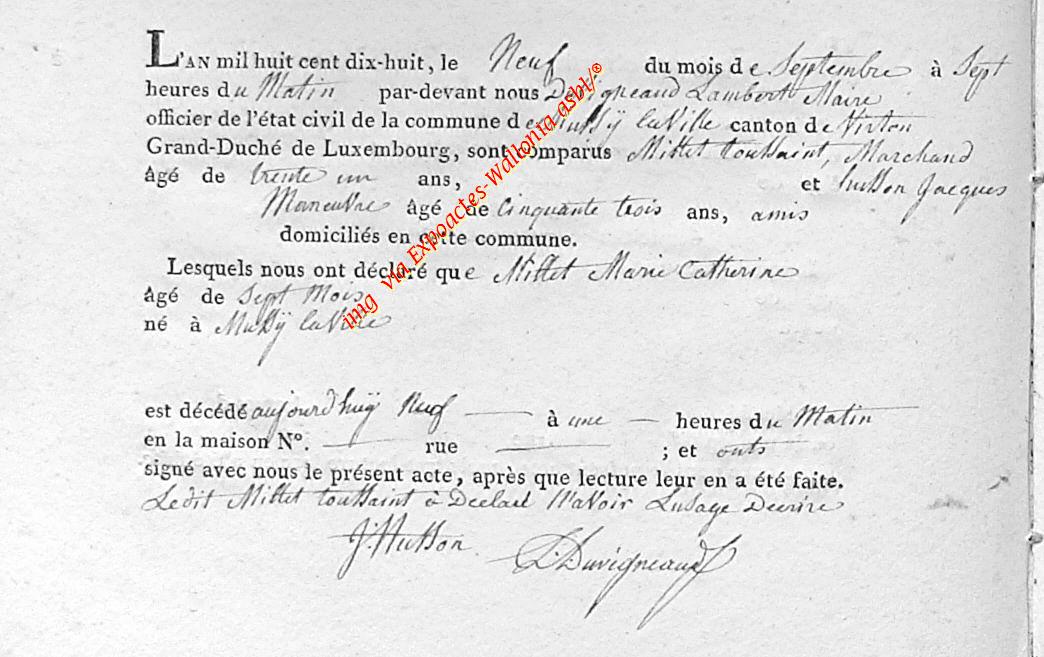 L'AN mil huit cent dix-huit, le Neuf du mois de Septembre à Sept
heures du Matin par-devant nous Duvigneaud Lambert Maire
officier de l'état civil de la commune de Mussÿ laVille canton de Virton
Grand-Duché de Luxembourg, sont comparus Millet toussaint, Marchand
âgé de trente un ans, et husson Jacques
Maneuvre âgé de Cinquante trois ans, amis
domiciliés en cette commune.
Lesquels nous ont déclaré que Millet Marie Catherine
âgé de Sept Mois
né à Mussÿ laVille
est décédé aujourd'huÿ Neuf à une heures du Matin
en la maison N°. rue ; et onts
signé avec nous le présent acte, après que lecture leur en a été faite.
Ledit Millet toussaint à Declaré N'avoir Lusage Decrire
J. Husson L. Duvigneaud
img via Expoactes-Wallonia asbl/®